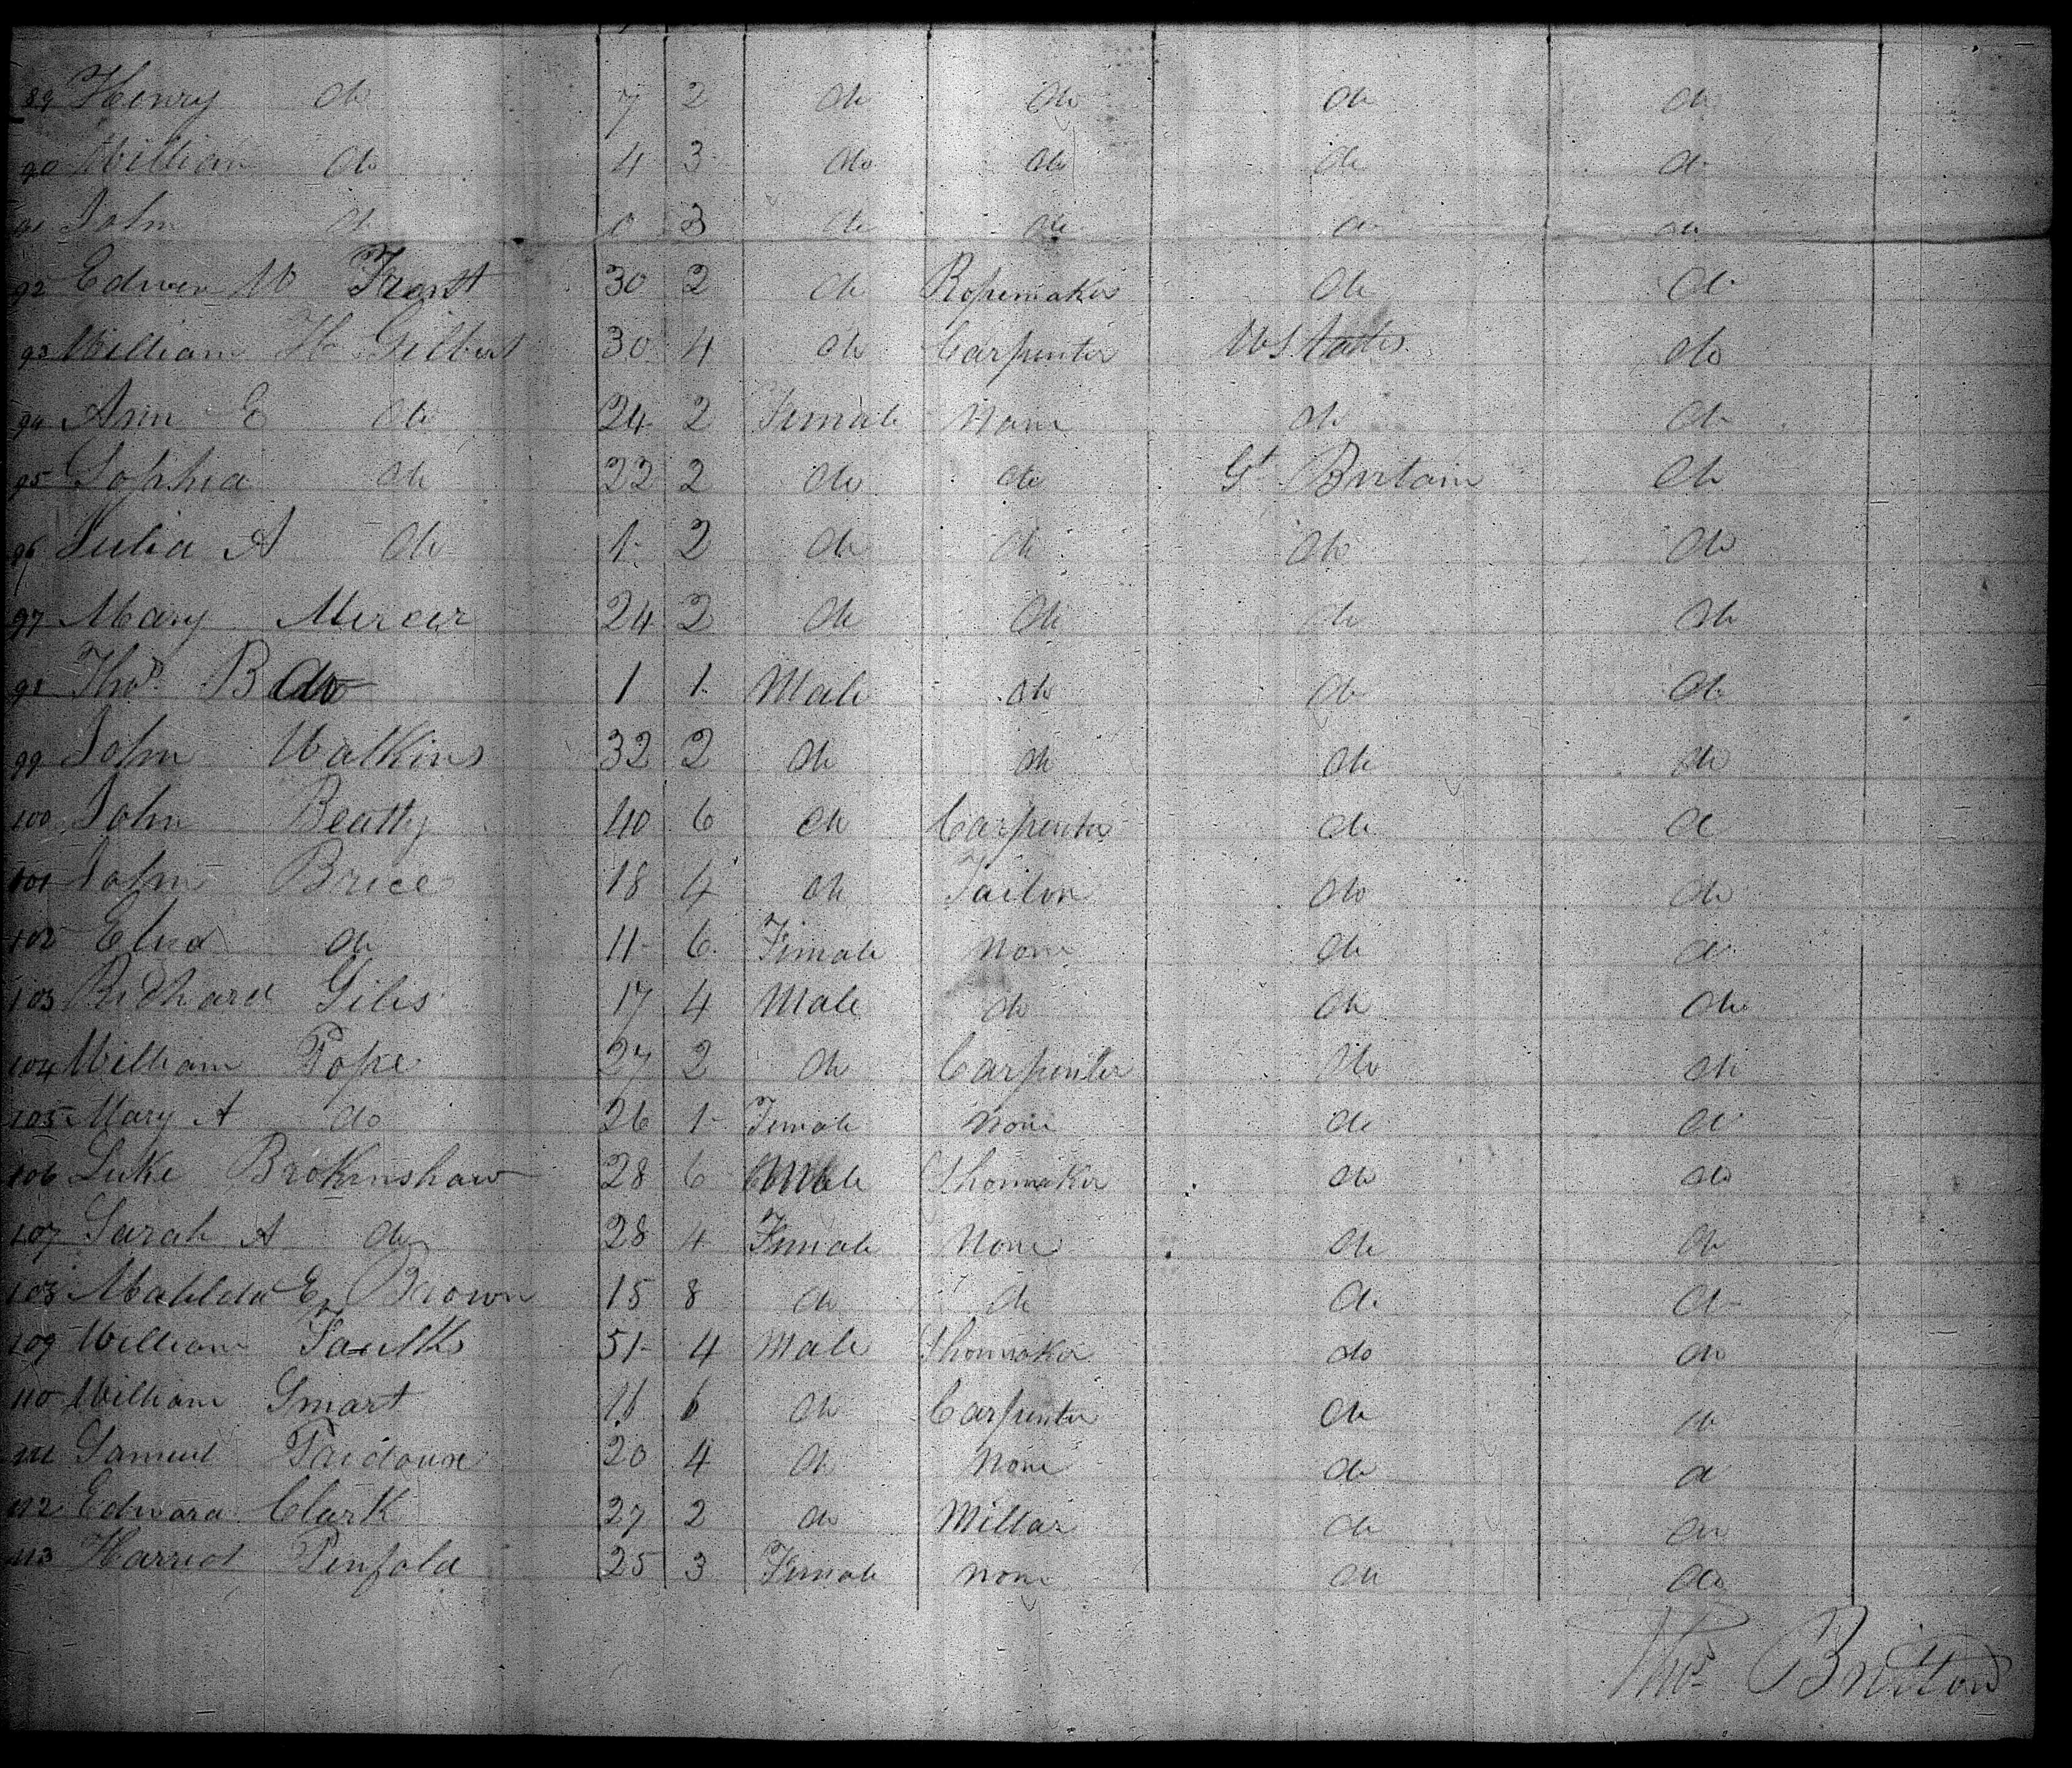 89 Henry do 7 2 do do do do
90 William do 4 3 do do do do
91 John do 0 3 do do do do
92 Edwin W Frost 30 2 do Ropemaker do do
93 William H Gilbert 30 4 do Carpenter U States do
94 Ann E do 24 2 Female None do do
95 Sophia do 22 2 do do Gt Britain do
96 Julia A do 1 2 do do do do
97 Mary Mercer 24 2 do do do do
98 Thos B do 1 1 Male do do do
99 John Watkins 32 2 do do do do
100 John Beatty 40 6 do Carpenter do do
101 John Brice 18 4 do Tailor do do
102 Eliza do 11 6 Female None do do
103 Richard Giles 17 4 Male do do do
104 William Pope 27 2 do Carpenter do do
105 Mary A do 26 1 Female None do do
106 Luke Brokenshaw 28 6 Male Shoemaker do do
107 Sarah A do 28 4 Female None do do
108 Mahlda E Brown 15 8 do do do do
109 William Faulks 51 4 Male Shoemaker do do
110 William Smart 16 6 do Carpenter do do
111 Samuel 20 4 do None do do
112 Edward Clark 27 2 do Millar do do
113 Harriot Penfold 25 3 Female None do do
Thos Britton